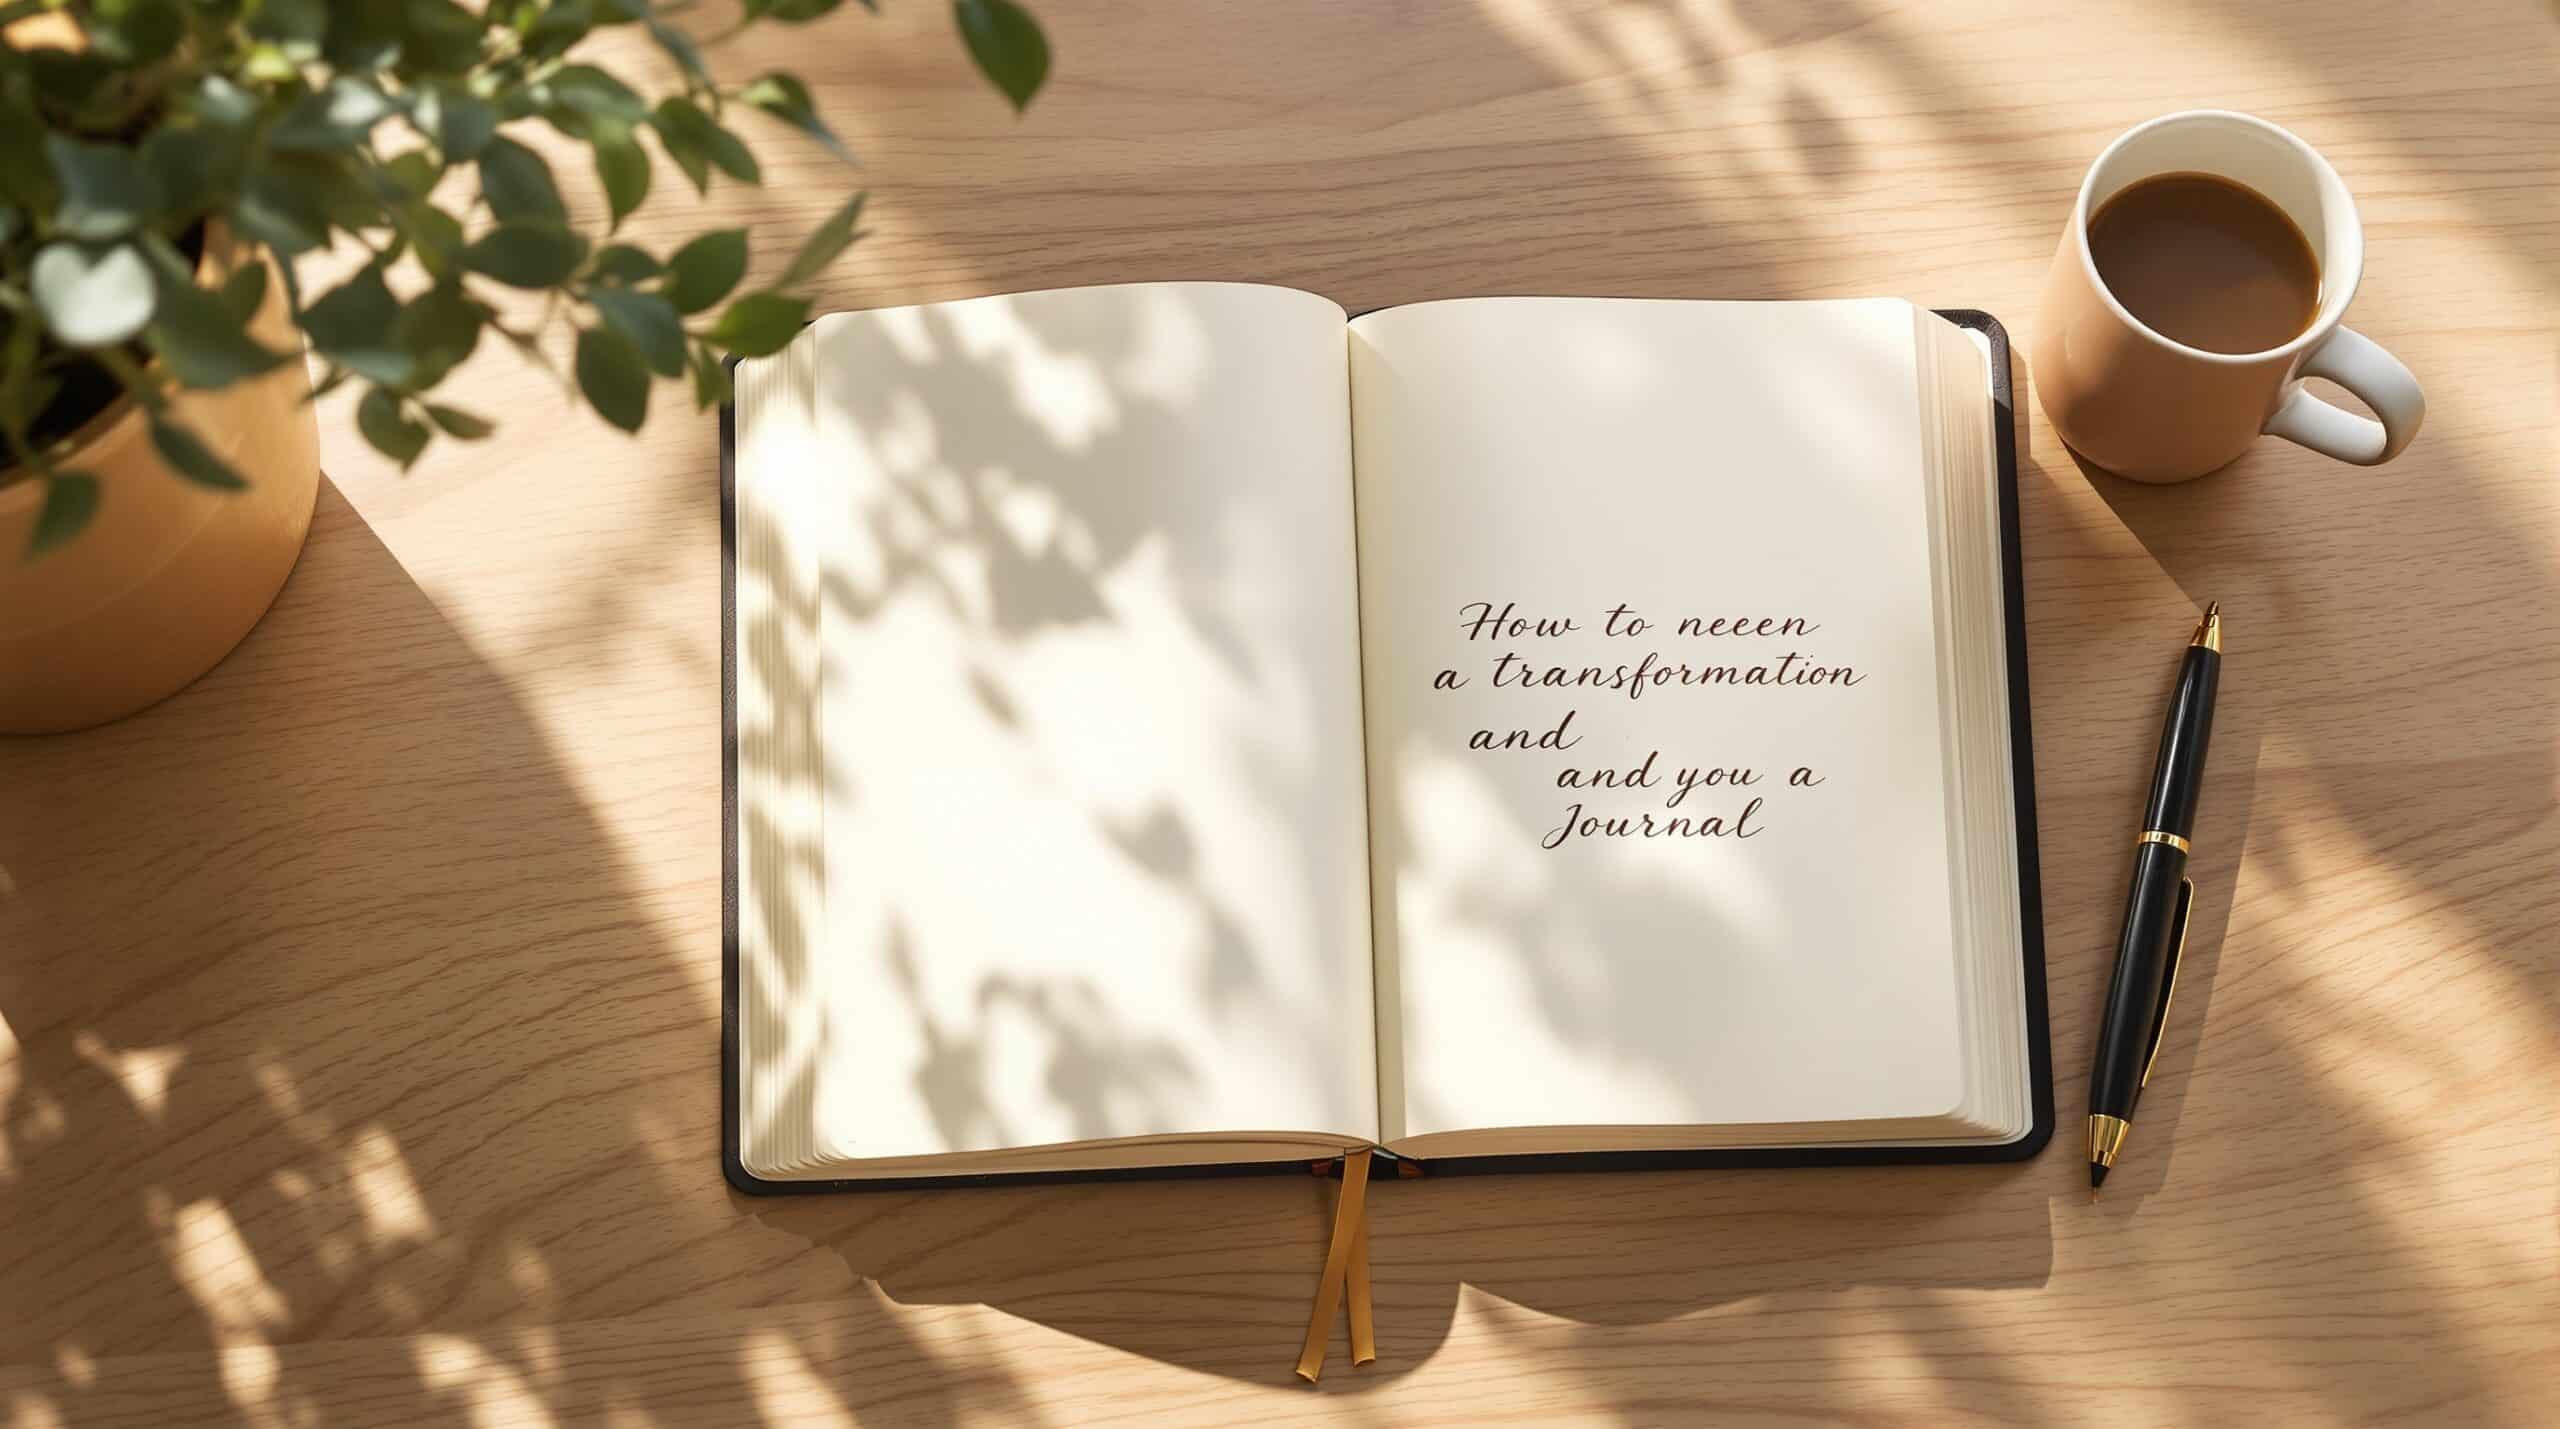 How to neeen
a transformation
and
and you a
Journal